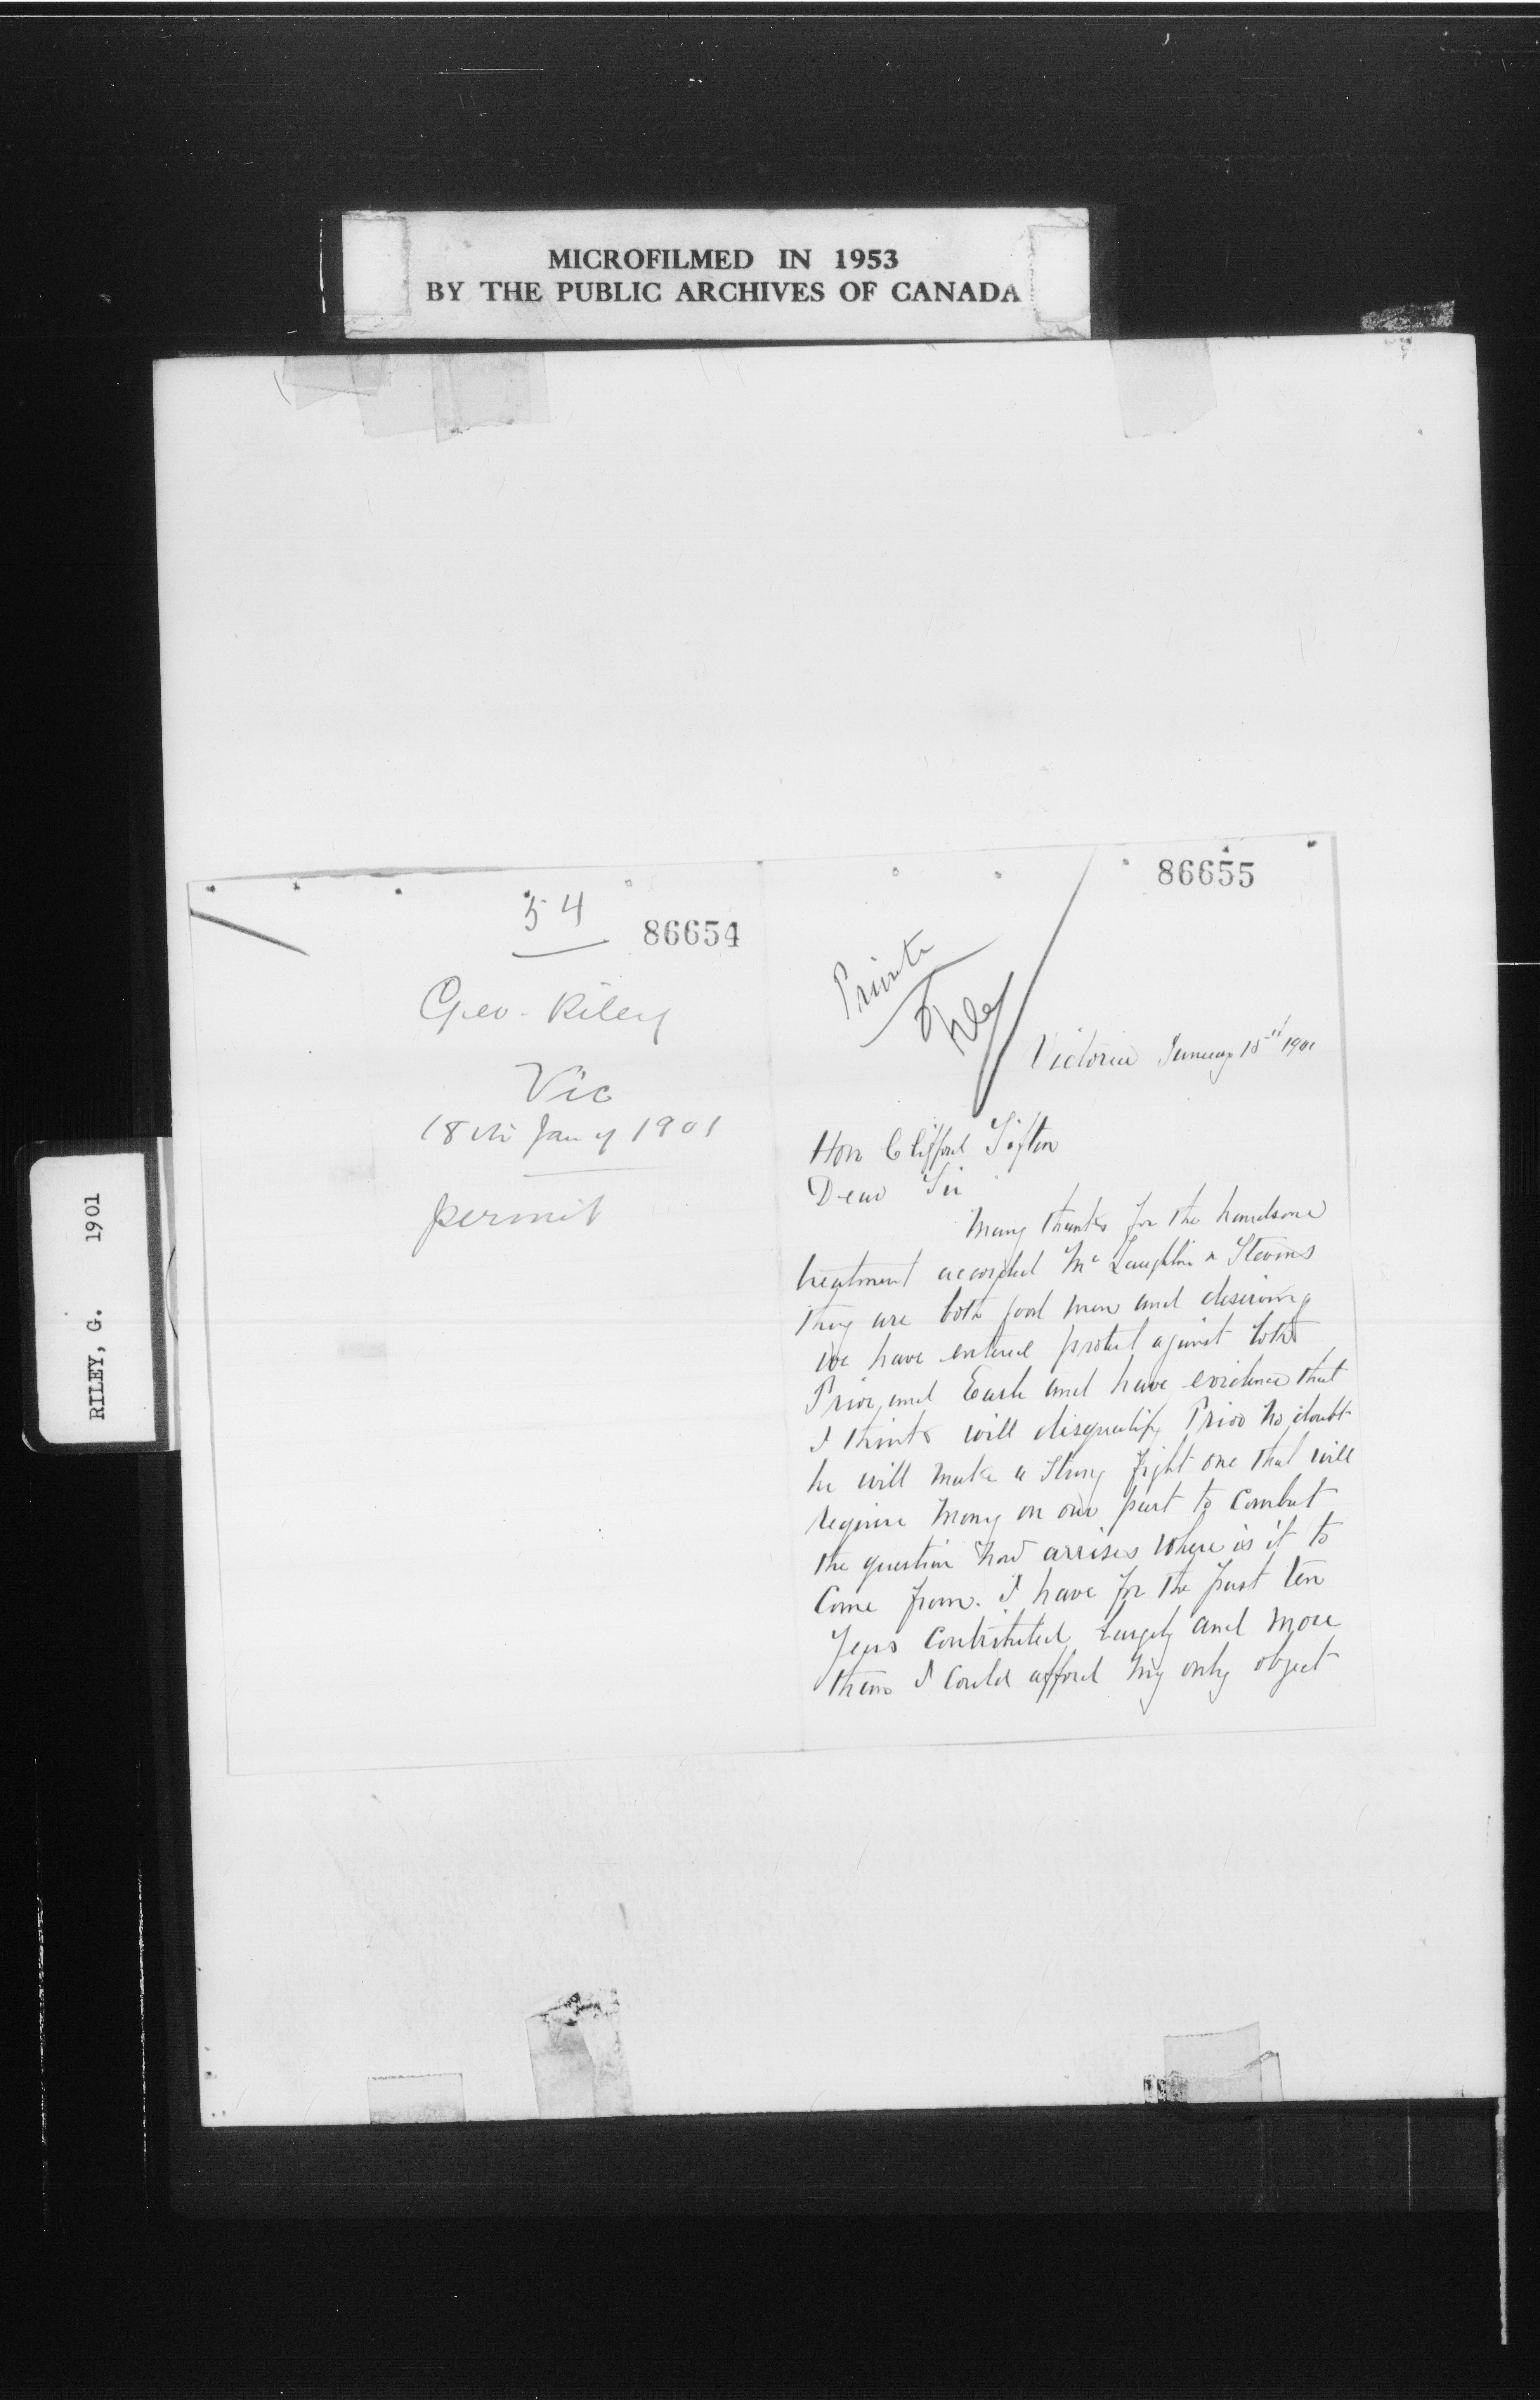 MICROFILMED IN 1953
BY THE PUBLIC ARCHIVES OF CANADA
RILEY, G. 1901
54
86654
Geo. Riley
Vic
18th Jany 1901
permit
86655
Private
File
Victoria January 18th 1901
Hon Clifford Sifton
Dear Sir
Many thanks for the handsome
treatment accorded McLaughlin &
they are both good men and deserving
we have entered protest against both
Prior and Earle and have evidence that
I think will disqualify Prior no doubt
he will make a strong fight one that will
require money on our part to combat
the question now arrises where is it to
come from. I have for the past ten
years contributed largely and more
than I could afford my only object